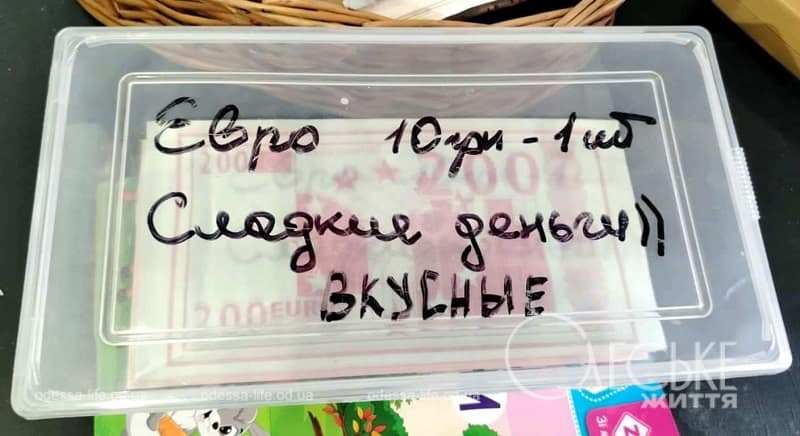 Евро 10грн - 1 шт
200 200
Сладкие деньги))
ВКУСНЫЕ
200 EURO
ОДЕСЬКЕ
ЖИТТЯ
odessa-life.od.ua odessa-life.od.ua odessa-life.od.ua